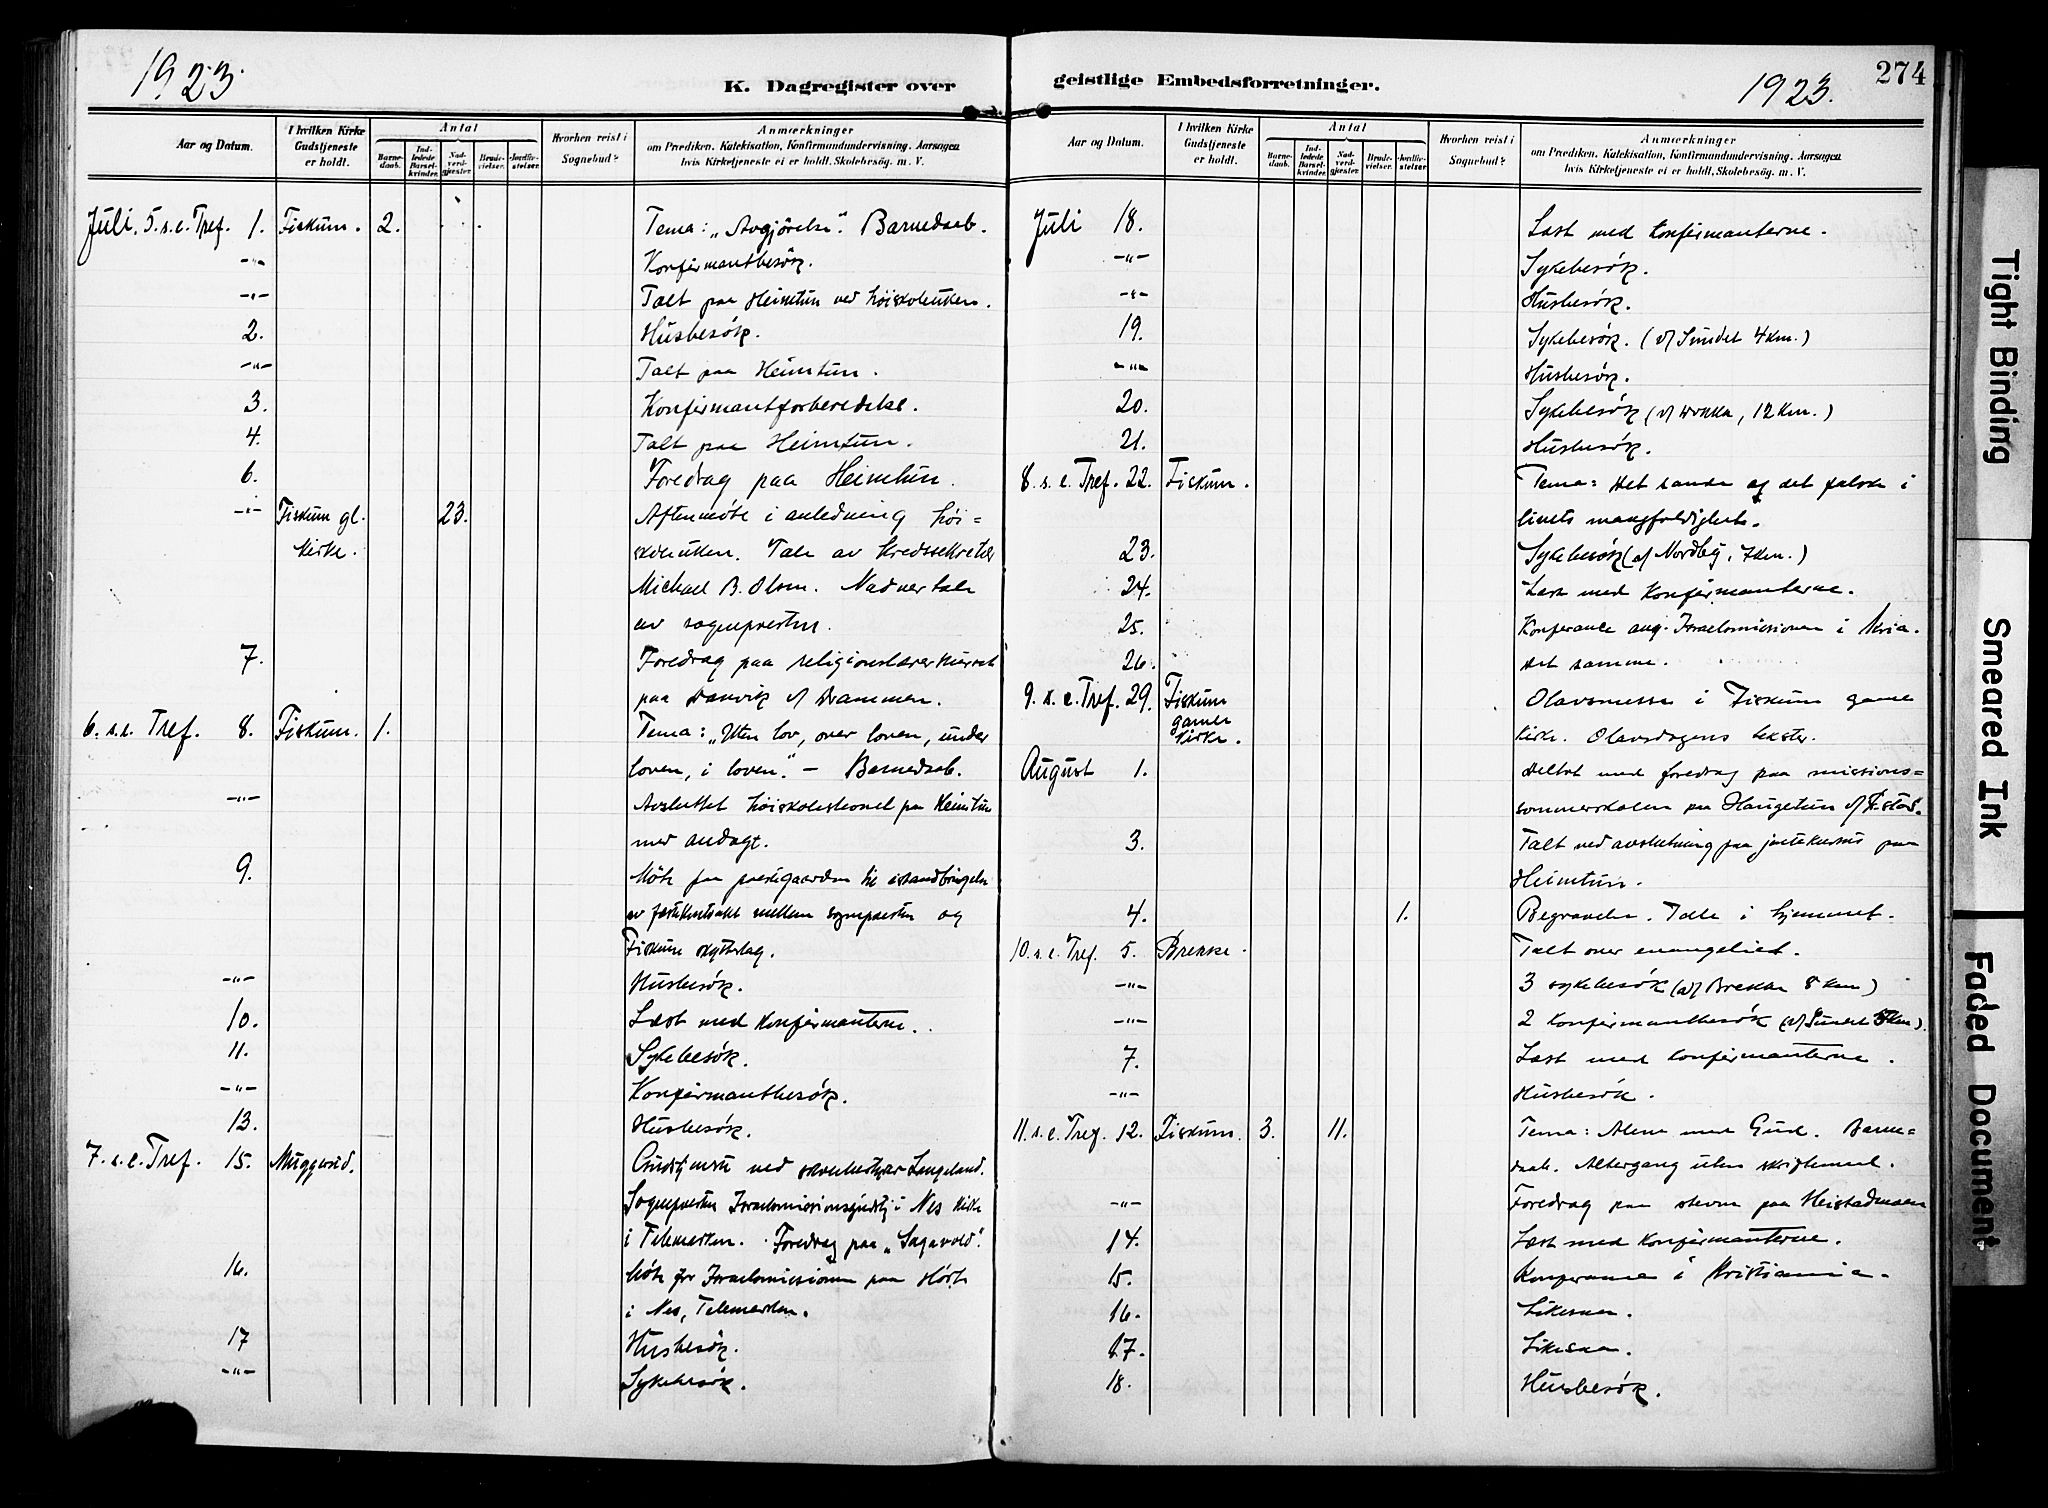 1923.
K. Dagregister over
Aar og Datum.
I hvilken Kirke Gudstjeneste er holdt.
Antal
Barnedaab.
Indledede Barselkvinder.
Nadverdgjester.
Brudevielser.
Jordfæstelser.
Hvorhen reist i Sognebud?
Anmærkninger
om Prædiken, Katekisation, Konfirmandundervisning, Aarsagen
hvis Kirketjeneste ei er holdt, Skolebesøg. m. V.
Juli. 5. s. e. Tref. 1. Fiskum. 2. Tema: „Avgjörelse". Barnedaab.
-"- Konfirmantbesök.
-"- Talt paa Heimtun ved höiskoleuken.
2. Husbesök.
-"- Talt paa Heimtun.
3. Konfirmantforberedelse.
4. Talt paa Heimtun.
6. Foredrag paa Heimtun.
-"- Fiskum gl. 23. Aftenmöte i anledning höi=
kirke. skoleuken. Tale av kredssekretær
Michael B. Olsen. Nadvertale
av sognepresten.
7. Foredrag paa religionslærerkurset
paa Danvik v/ Drammen.
6. s. e. Tref. 8. Fiskum. 1. Tema: „Uten lov, over loven, under
loven, i loven." – Barnedaab.
-"- Avsluttet höiskolestevnet paa Heimtun
med andagt.
9. Möte paa prestegaarden til istandbringelse
av festekontrakt mellem sognepresten og
Fiskum skytterlag.
-"- Husbesök.
10. Læst med konfirmanterne.
11. Sykebesök.
-"- Konfirmantbesök.
13. Husbesök.
7. s. e. Tref. 15. Muggerud. Gudstjeneste ved skolebestyrer Langeland.
Sognepresten Israelsmissionsgudstj. i Nes kirke
i Telemarken. Foredrag paa „Sagavold".
16. Möte for Israelsmissionen paa Hörte
i Nes, Telemarken.
17 Husbesök.
-"- Sykebesök.
geistlige Embedsforretninger.
1923.
274
Aar og Datum.
I hvilken Kirke Gudstjeneste er holdt.
Antal
Barnedaab.
Indledede Barselkvinder.
Nadverdgjester.
Brudevielser.
Jordfæstelser
Hvorhen reist i Sognebud?
Anmærkninger
om Prædiken, Katekisation, Konfirmandundervisning, Aarsagen
hvis Kirketjeneste ei er holdt, Skolebesøg. m. V.
Juli 18. Læst med konfirmanterne.
-"- Sykebesök.
-"- Husbesök.
19. Sykebesök. (v/ Sundet 4 km.)
-"- Husbesök.
20. Sykebesök (v/ 12 km.)
21. Husbesök.
8. s. e. Tref. 22. Fiskum. Tema: Det sande og det falske i
livets mangfoldighet.
23. Sykebesök (v/ Nordby, 7 km.)
24. Læst med konfirmanterne.
25. Konferance ang. Israelsmissionen i Kria.
26. Det samme.
9. s. e. Tref. 29. Fiskum Olavsmesse i Fiskum gamle
gamle kirke. kirke. Olavsdagens tekster.
August 1. Deltat med foredrag paa missions=
sommerskolen paa Haugetun v/ F.stad.
3. Talt ved avslutning paa kursus paa
Heimtun.
4. 1. Begravelse. Tale i hjemmet.
10. s. e. Tref. 5. Brekke. Talt over evangeliet.
-"- 3 sykebesök (v/ Brekke 8 km)
-"- 2 konfirmantbesök (v/ Sundet 5 km).
7. Læst med konfirmanterne.
-"- Husbesök.
11. s. e. Tref. 12. Fiskum. 3. 11. Tema: Alene med Gud. Barne=
daab. Altergang uten skriftemaal.
-"- Foredrag paa stevne paa Heistadmoen
14. Læst med konfirmanterne.
15. Konferanse i Kristiania.
16. Likesaa.
17. Likesaa.
18. Husbesök.
Tight Binding
Smeared Ink
Faded Document